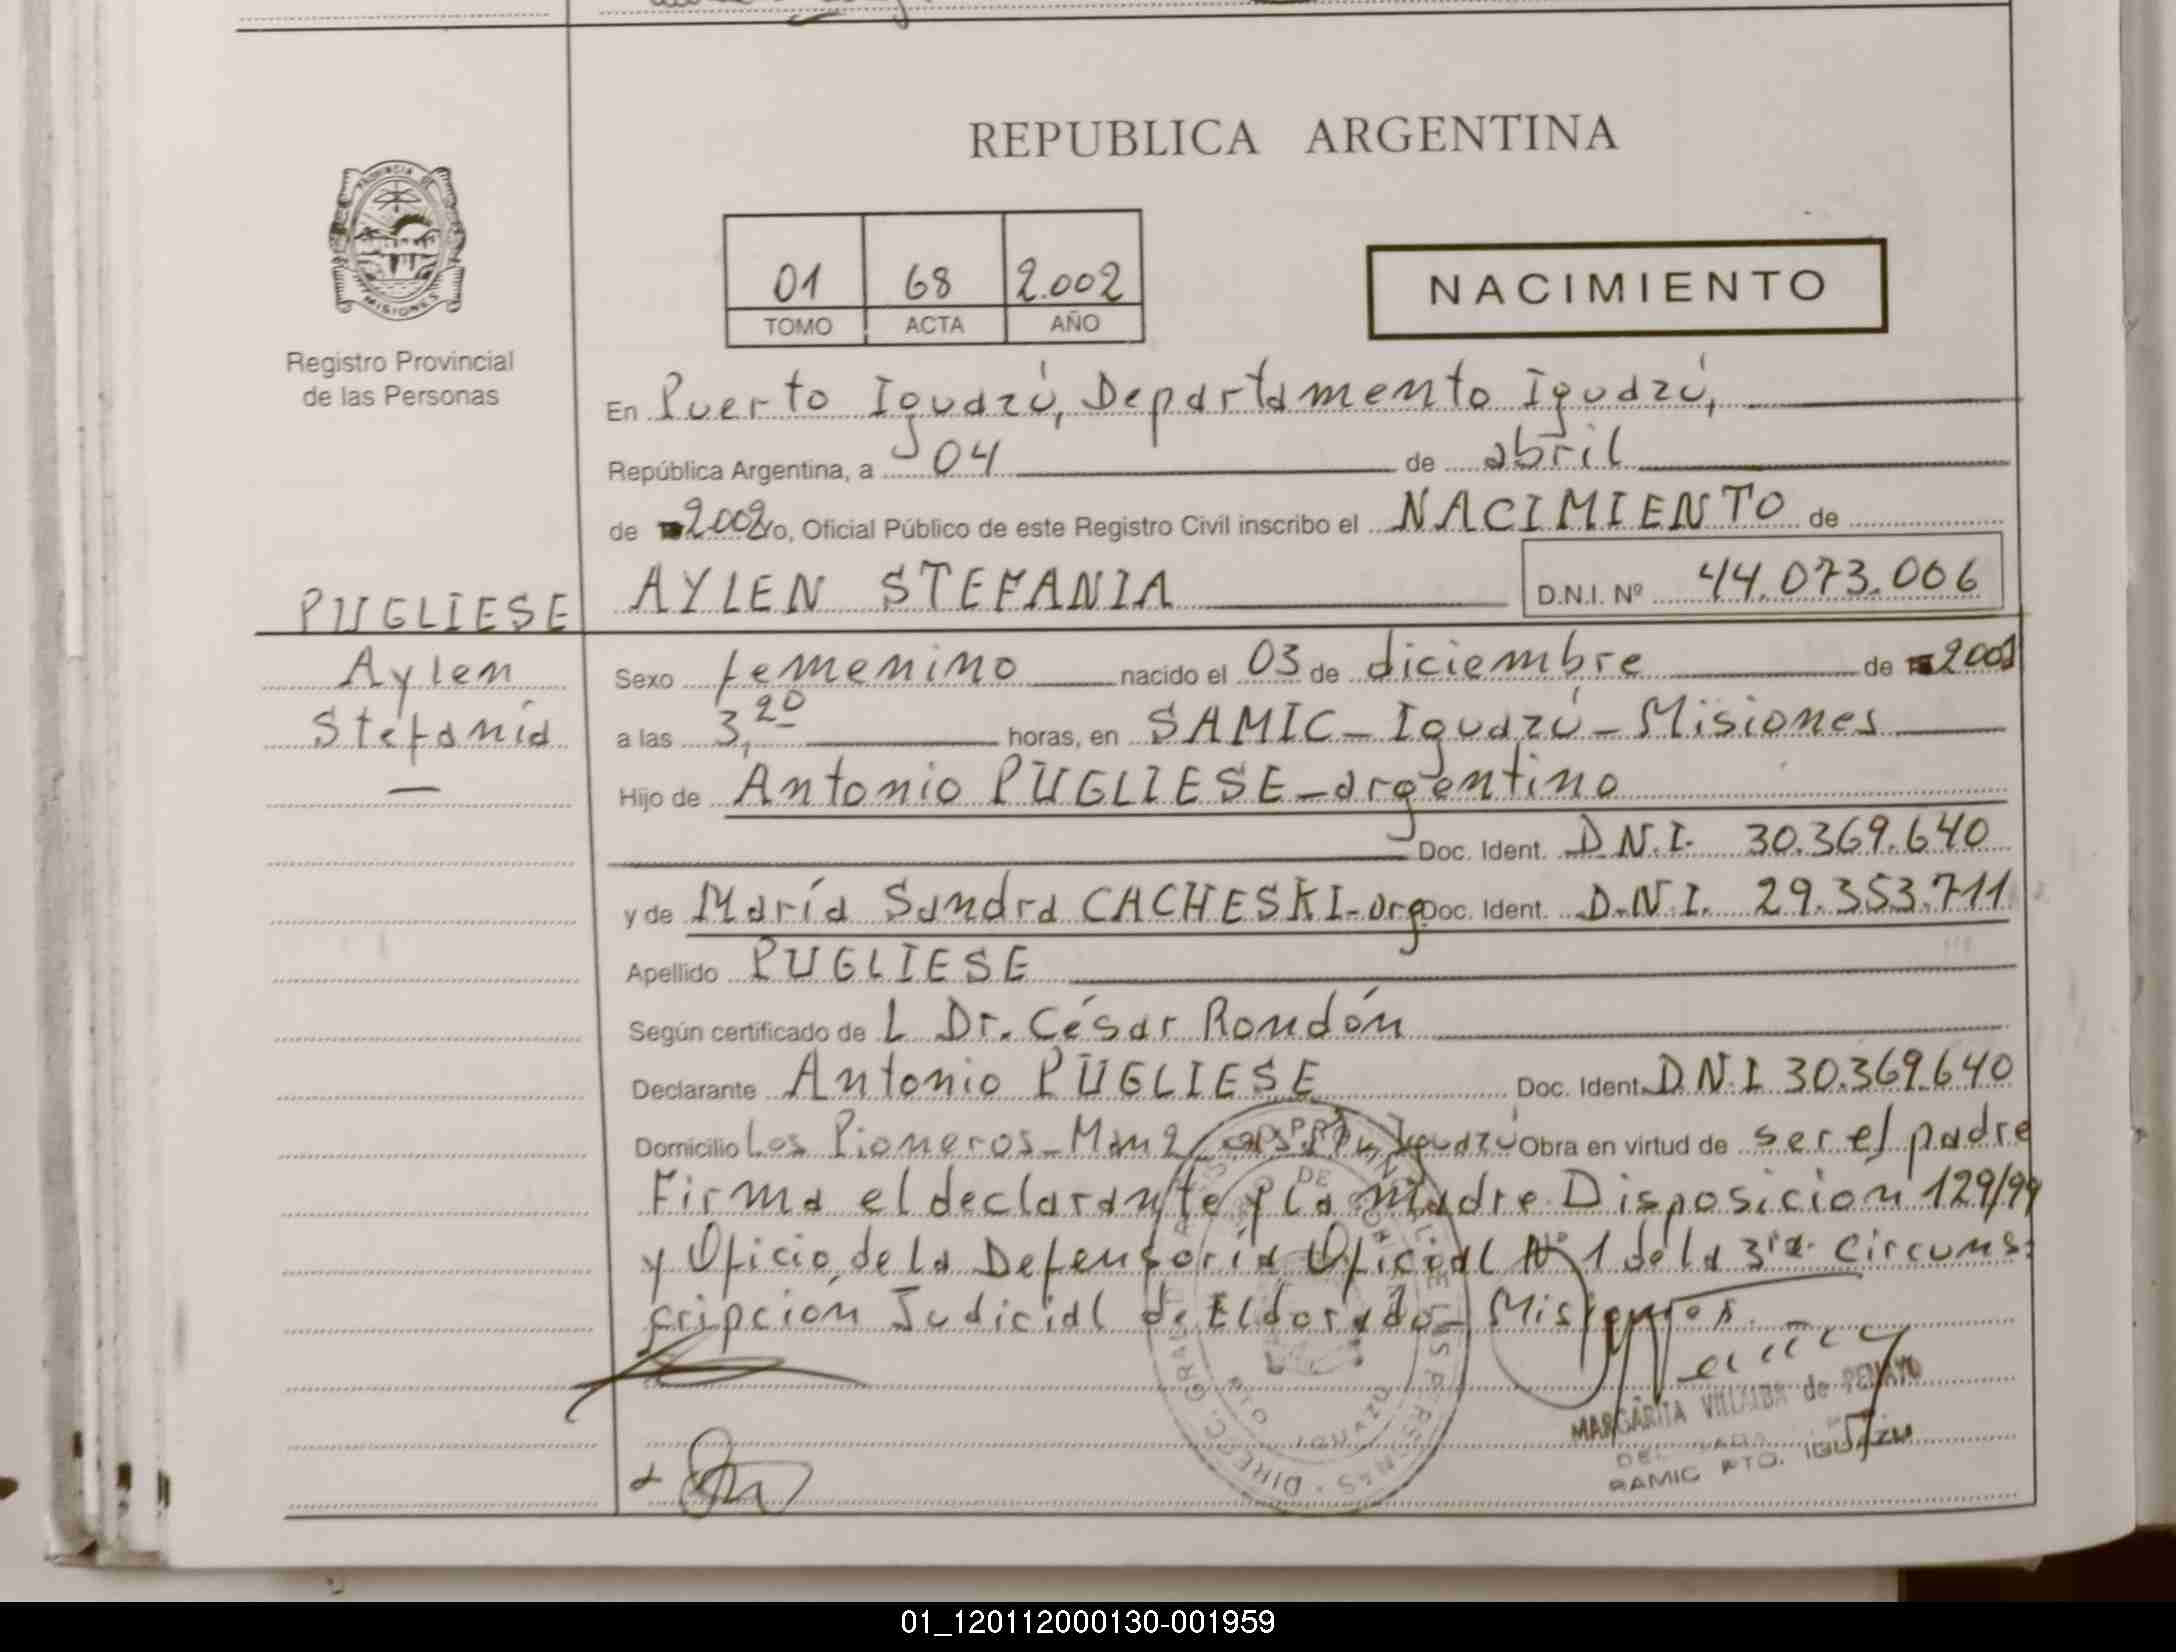 REPUBLICA ARGENTINA
PROVINCIA DE
MISIONES
Registro Provincial
de las Personas
01 68 2.002
TOMO ACTA AÑO
NACIMIENTO
En Puerto Iguazú, Departamento Iguazú,
República Argentina, a 04 de abril
de 2002 yo, Oficial Público de este Registro Civil inscribo el NACIMIENTO de
PUGLIESE AYLEN STEFANIA D.N.I. Nº 44.073.006
Aylen
Stefania
Sexo femenino nacido el 03 de diciembre de 2001
a las 3,20 horas, en SAMIC - Iguazú - Misiones
Hijo de Antonio PUGLIESE - argentino
Doc. Ident. D.N.I. 30.369.640
y de María Sandra CACHESKI - arg. Doc. Ident. D.N.I. 29.353.711
Apellido PUGLIESE
Según certificado de L Dr. César Rondón
Declarante Antonio PUGLIESE Doc. Ident. D.N.I 30.369.640
Domicilio Los Pioneros - Man 2 Iguazú Obra en virtud de ser el padre
Firma el declarante y la madre Disposicion 129/99
y Oficio de la Defensoría Oficial Nº 1 de la 3ra. Circuns-
cripción Judicial de Eldorado - Misiones.
MARGARITA VILLALBA de PENAYO
SAMIC PTO. IGUAZU
01_120112000130-001959